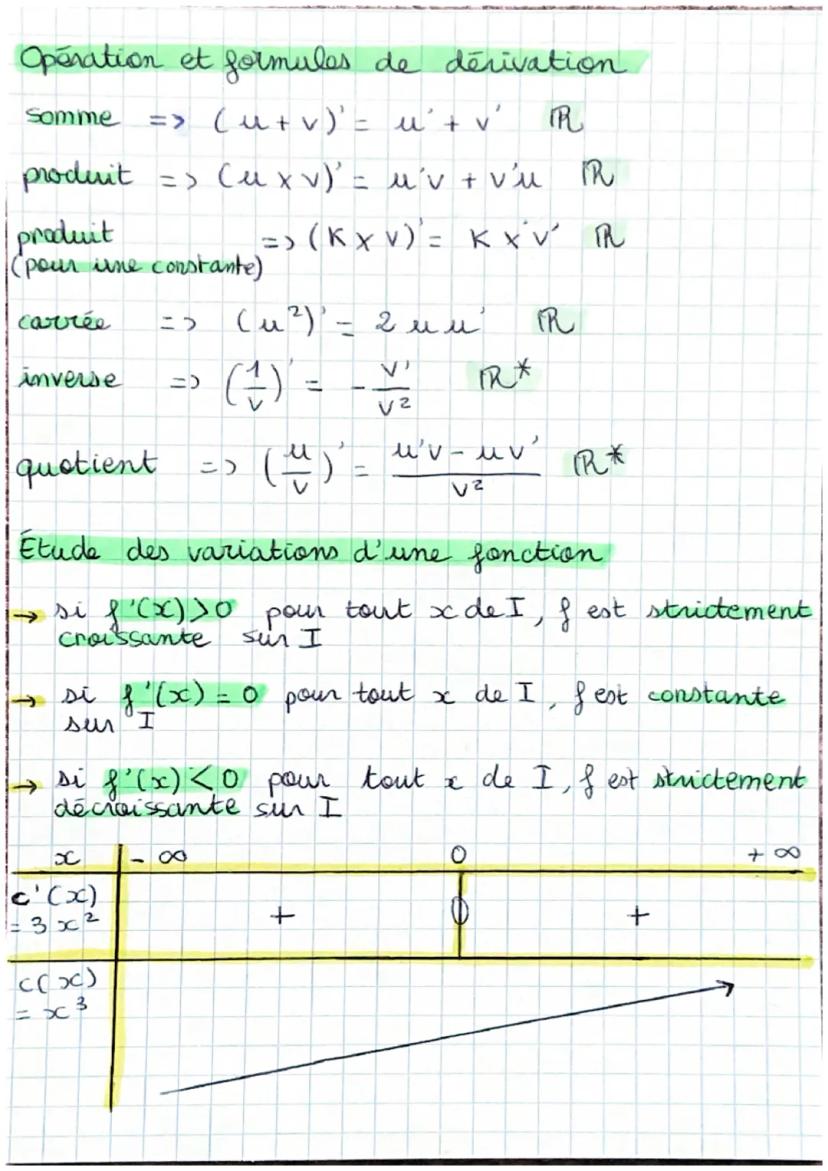 Opération et formules de dérivation
somme => (u + v)' = u' + v' ℝ
produit => (u x v)' = u'v + v'u ℝ
produit => (K x v)' = K x v' ℝ
(pour une constante)
carrée => (u²)' = 2 u u' ℝ
inverse => (1/v)' = - v'/v² ℝ*
quotient => (u/v)' = (u'v - uv')/v² ℝ*
Étude des variations d'une fonction
→ si f'(x) > 0 pour tout x de I, f est strictement
croissante sur I
→ si f'(x) = 0 pour tout x de I, f est constante
sur I
→ si f'(x) < 0 pour tout x de I, f est strictement
décroissante sur I
x - ∞ 0 + ∞
c'(x) + 0 +
= 3x²
c(x)
= x³